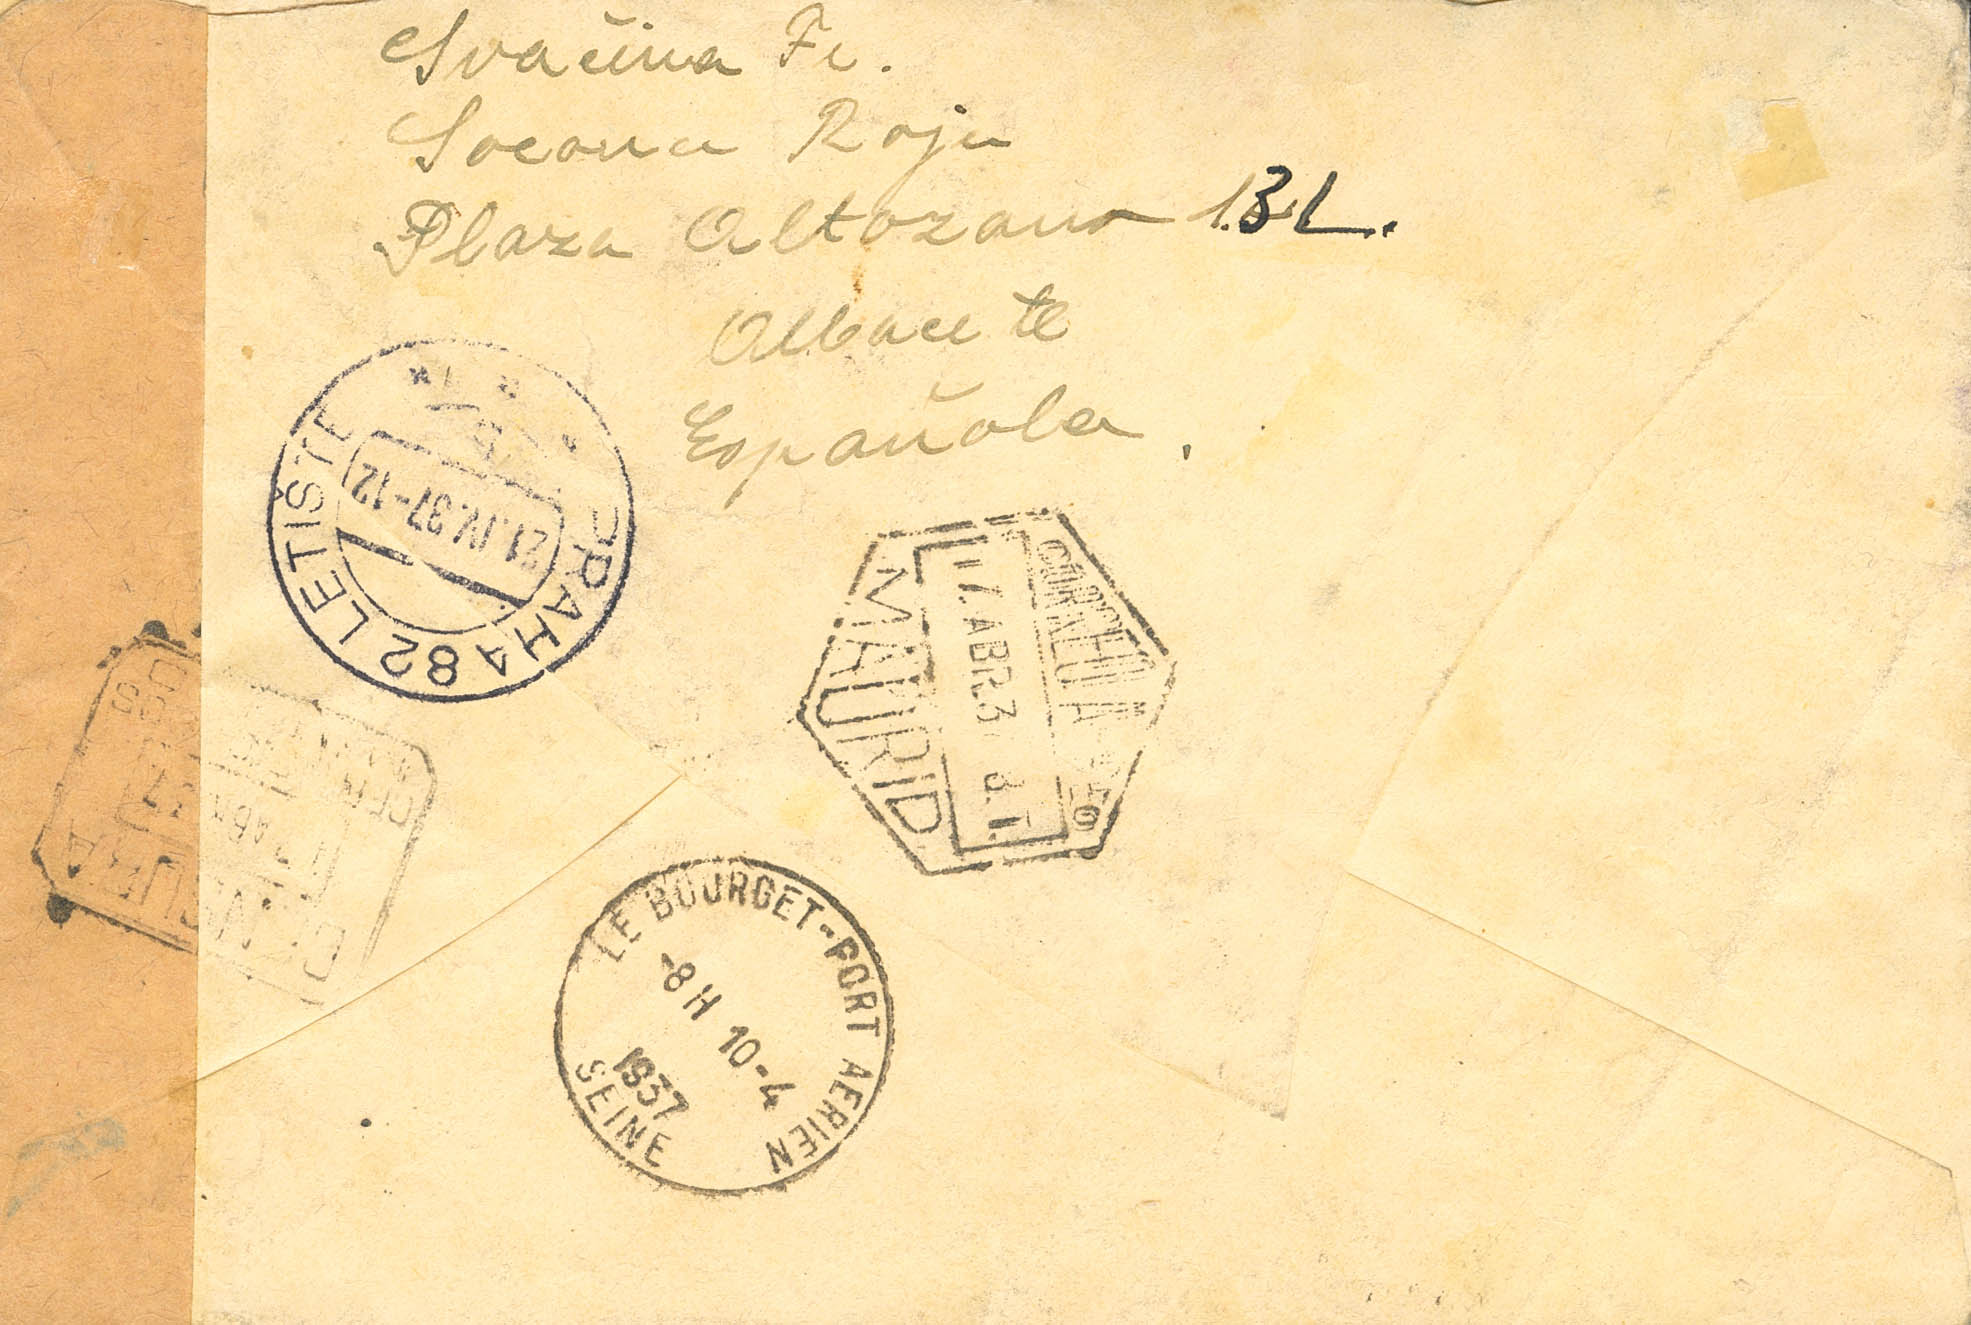 Svačina Fr.
Socorro Rojo
Plaza Altozano 13L.
Albacete
Española.
PRAHA 82 LETIŠTĚ
21.IV.37-12
CORREO AEREO
ABR.3
MADRID
CENSURA
LE BOURGET-PORT AERIEN
-8H 10-4
1937
SEINE